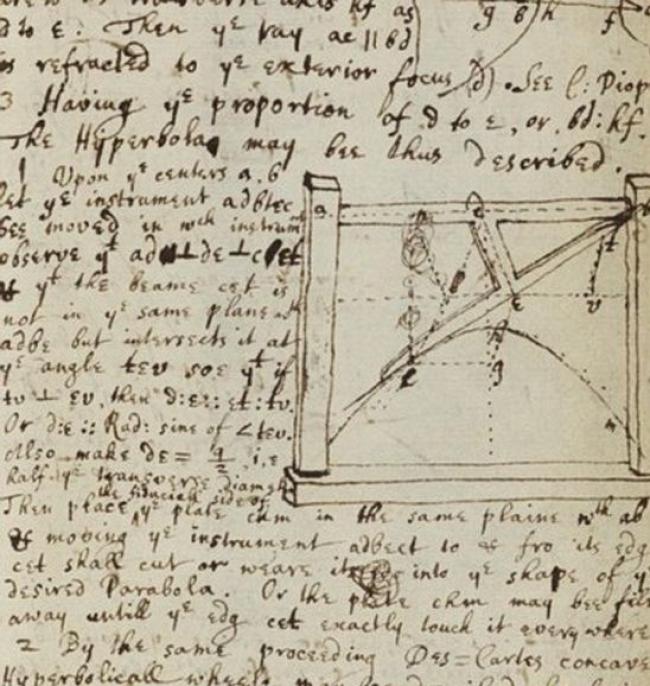 d to ε. Then yᵉ ray ac || bd
is refracted to yᵉ exterior focus (d). See C: Diop
3 Having yᵉ proportion of d to ε, or, bd: hf.
The Hyperbola may bee thus described.
1 Upon yᵉ centers a. b
let yᵉ instrument adbtec
bee moved in wᶜʰ instrumᵗ
observe yᵗ ad ⊥ de ⊥ cet
yᵗ the beame cet is
not in yᵉ same plane wᵗʰ
adbe but intersects it at
yᵉ angle tev soe yᵗ if
tv ⊥ ev, then d:ε:: et: tv.
Or d:ε :: Rad: sine of ∠tev.
Also make de = q/2, i.e
half yᵉ transverse diameter
the fiduciall side of
Then place yᵉ plate chm in the same plaine wᵗʰ ab
& moving yᵉ instrument adbect to & fro its edg
cet shall cut or weare it into yᵉ shape of yᵉ
desired Parabola. Or the plate chm may bee file
away untill yᵉ edg cet exactly touch it every where
2 By the same proceeding Des=Cartes concave
Hyperbolicall wheels may bee described
g b h f
a c b
t
e v
h
c g
m